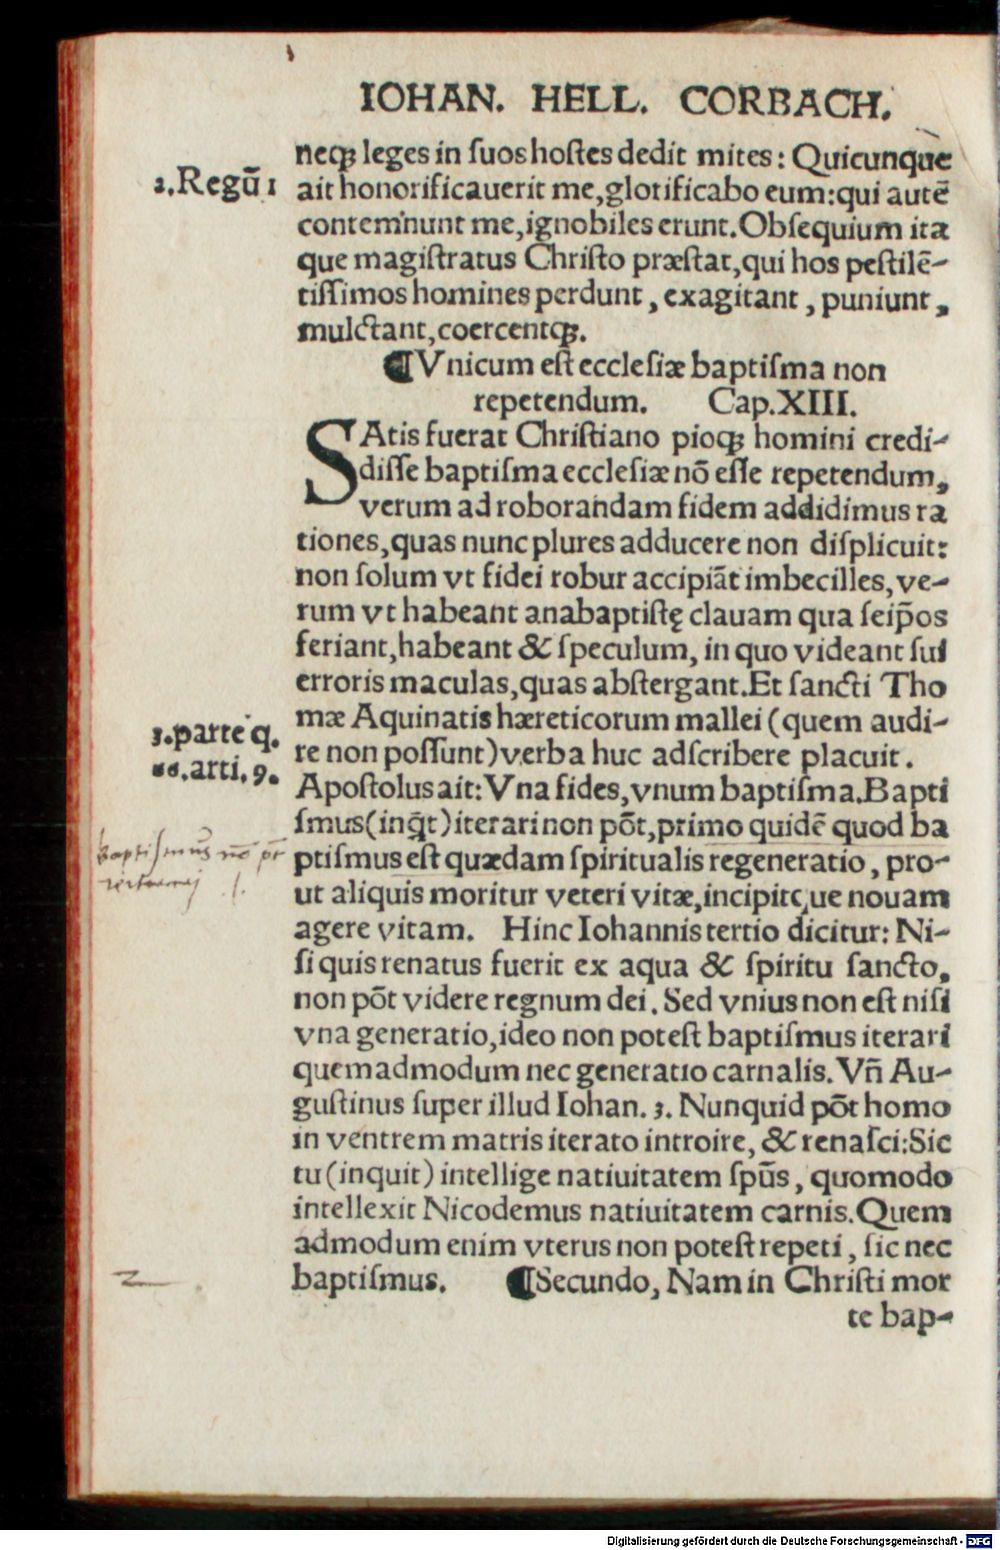 IOHAN. HELL. CORBACH.
neqꝫ leges in ſuos hoſtes dedit mites: Quicunque
2.Regū 1
ait honorificauerit me,glorificabo eum:qui autē
contemnunt me,ignobiles erunt.Obſequium ita
que magiſtratus Chriſto præſtat,qui hos peſtilē-
tiſſimos homines perdunt, exagitant, puniunt,
mulctant,coercentqꝫ.
¶Vnicum eſt eccleſiæ baptiſma non
repetendum. Cap.XIII.
SAtis fuerat Chriſtiano pioqꝫ homini credi-
diſſe baptiſma eccleſiæ nō eſſe repetendum,
verum ad roborandam fidem addidimus ra
tiones,quas nunc plures adducere non diſplicuit:
non ſolum vt fidei robur accipiāt imbecilles,ve-
rum vt habeant anabaptiſtę clauam qua ſeip̄os
feriant,habeant & ſpeculum, in quo videant ſui
erroris maculas,quas abſtergant.Et ſancti Tho
mæ Aquinatis hæreticorum mallei (quem audi-
3.parte q.
66.arti.9.
re non poſſunt)verba huc adſcribere placuit.
Apoſtolus ait: Vna fides,vnum baptiſma.Bapti
ſmus(inq̄t)iterari non pōt,primo quidē quod ba
baptiſmus nō pt
ptiſmus eſt quædam ſpiritualis regeneratio, pro-
ut aliquis moritur veteri vitæ,incipitque nouam
agere vitam. Hinc Iohannis tertio dicitur: Ni-
ſi quis renatus fuerit ex aqua & ſpiritu ſancto,
non pōt videre regnum dei. Sed vnius non eſt niſi
vna generatio,ideo non poteſt baptiſmus iterari
quemadmodum nec generatio carnalis. Vn̄ Au-
guſtinus ſuper illud Iohan. 3. Nunquid pōt homo
in ventrem matris iterato introire, & renaſci:Sic
tu(inquit) intellige natiuitatem ſpūs, quomodo
intellexit Nicodemus natiuitatem carnis.Quem
admodum enim vterus non poteſt repeti, ſic nec
2
baptiſmus. ¶Secundo, Nam in Chriſti mor
te bap-
Digitalisierung gefördert durch die Deutsche Forschungsgemeinschaft - DFG